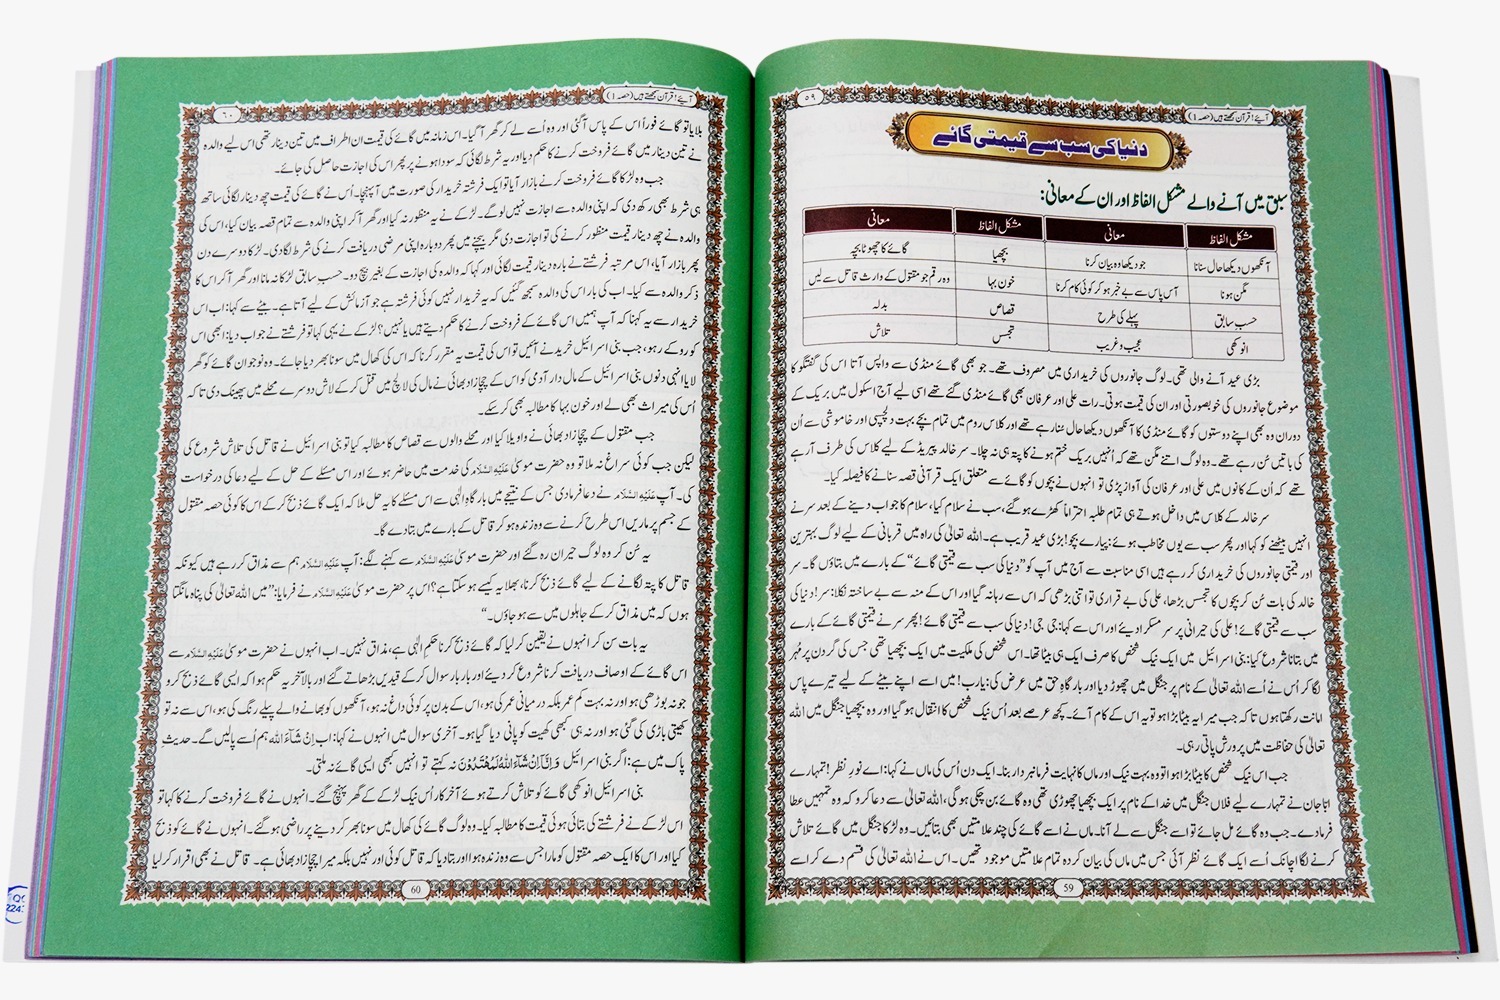 آیئے! قرآن سمجھتے ہیں (حصہ ۱)
۵۹
دنیا کی سب سے قیمتی گائے
سبق میں آنے والے مشکل الفاظ اور ان کے معانی:
مشکل الفاظ معانی مشکل الفاظ معانی
آنکھوں دیکھا حال سنانا جو دیکھا وہ بیان کرنا بچھیا گائے کا چھوٹا بچہ
مگن ہونا آس پاس سے بے خبر ہو کر کوئی کام کرنا خون بہا وہ رقم جو مقتول کے وارث قاتل سے لیں
حسبِ سابق پہلے کی طرح قصاص بدلہ
انوکھی عجیب و غریب تجسس تلاش
بڑی عید آنے والی تھی۔ لوگ جانوروں کی خریداری میں مصروف تھے۔ جو بھی گائے منڈی سے واپس آتا اس کی گفتگو کا
موضوع جانوروں کی خوبصورتی اور ان کی قیمت ہوتی۔ رات علی اور عرفان بھی گائے منڈی گئے تھے اسی لیے آج اسکول میں بریک کے
دوران وہ بھی اپنے دوستوں کو گائے منڈی کا آنکھوں دیکھا حال سنا رہے تھے اور کلاس روم میں تمام بچے بہت دلچسپی اور خاموشی سے اُن
کی باتیں سُن رہے تھے۔ وہ لوگ اتنے مگن تھے کہ اُنہیں بریک ختم ہونے کا پتہ ہی نہ چلا۔ سر خالد پیریڈ کے لیے کلاس کی طرف آ رہے
تھے کہ اُن کے کانوں میں علی اور عرفان کی آواز پڑی تو انہوں نے بچوں کو گائے سے متعلق ایک قرآنی قصہ سنانے کا فیصلہ کیا۔
سر خالد کے کلاس میں داخل ہوتے ہی تمام طلبہ احتراماً کھڑے ہو گئے، سب نے سلام کیا، سلام کا جواب دینے کے بعد سر نے
انہیں بیٹھنے کو کہا اور پھر سب سے یوں مخاطب ہوئے: پیارے بچو! بڑی عید قریب ہے۔ اللہ تعالیٰ کی راہ میں قربانی کے لیے لوگ بہترین
اور قیمتی جانوروں کی خریداری کر رہے ہیں اسی مناسبت سے آج میں آپ کو ”دنیا کی سب سے قیمتی گائے“ کے بارے میں بتاؤں گا۔ سر
خالد کی بات سُن کر بچوں کا تجسس بڑھا، علی کی بے قراری تو اتنی بڑھی کہ اس سے رہا نہ گیا اور اس کے منہ سے بے ساختہ نکلا: سر! دنیا کی
سب سے قیمتی گائے! علی کی حیرانی پر سر مسکرا دیئے اور اس سے کہا: جی جی! دنیا کی سب سے قیمتی گائے! پھر سر نے قیمتی گائے کے بارے
میں بتانا شروع کیا: بنی اسرائیل میں ایک نیک شخص کا صرف ایک ہی بیٹا تھا۔ اس شخص کی ملکیت میں ایک بچھیا تھی جس کی گردن پر مُہر
لگا کر اُس نے اُسے اللہ تعالیٰ کے نام پر جنگل میں چھوڑ دیا اور بارگاہِ حق میں عرض کی: یارب! میں اسے اپنے بیٹے کے لیے تیرے پاس
امانت رکھتا ہوں تاکہ جب میرا یہ بیٹا بڑا ہو تو یہ اس کے کام آئے۔ کچھ عرصے بعد اُس نیک شخص کا انتقال ہو گیا اور وہ بچھیا جنگل میں اللہ
تعالیٰ کی حفاظت میں پرورش پاتی رہی۔
جب اس نیک شخص کا بیٹا بڑا ہوا تو وہ بہت نیک اور ماں کا نہایت فرمانبردار بنا۔ ایک دن اُس کی ماں نے کہا: اے نورِ نظر! تمہارے
اباجان نے تمہارے لیے فلاں جنگل میں خدا کے نام پر ایک بچھیا چھوڑی تھی وہ گائے بن چکی ہو گی، اللہ تعالیٰ سے دعا کرو کہ وہ تمہیں عطا
فرما دے۔ جب وہ گائے مل جائے تو اسے جنگل سے لے آنا۔ ماں نے اسے گائے کی چند علامتیں بھی بتائیں۔ وہ لڑکا جنگل میں گائے تلاش
کرنے لگا اچانک اُسے ایک گائے نظر آئی جس میں ماں کی بیان کردہ تمام علامتیں موجود تھیں۔ اس نے اللہ تعالیٰ کی قسم دے کر اسے
59
آیئے! قرآن سمجھتے ہیں (حصہ ۱)
۶۰
بلایا تو گائے فوراً اُس کے پاس آ گئی اور وہ اُسے لے کر گھر آ گیا۔ اس زمانہ میں گائے کی قیمت ان اطراف میں تین دینار تھی اس لیے والدہ
نے تین دینار میں گائے فروخت کرنے کا حکم دیا اور یہ شرط لگائی کہ سودا ہونے پر پھر اس کی اجازت حاصل کی جائے۔
جب وہ لڑکا گائے فروخت کرنے بازار آیا تو ایک فرشتہ خریدار کی صورت میں آ پہنچا۔ اُس نے گائے کی قیمت چھ دینار لگائی ساتھ
ہی شرط بھی رکھ دی کہ اپنی والدہ سے اجازت نہیں لو گے۔ لڑکے نے یہ منظور نہ کیا اور گھر آ کر اپنی والدہ سے تمام قصہ بیان کیا، اس کی
والدہ نے چھ دینار قیمت منظور کرنے کی تو اجازت دی مگر بیچنے میں پھر دوبارہ اپنی مرضی دریافت کرنے کی شرط لگا دی۔ لڑکا دوسرے دن
پھر بازار آیا، اس مرتبہ فرشتے نے بارہ دینار قیمت لگائی اور کہا کہ والدہ کی اجازت کے بغیر بیچ دو۔ حسبِ سابق لڑکا نہ مانا اور گھر آ کر اس کا
ذکر والدہ سے کیا۔ اب کی بار اس کی والدہ سمجھ گئیں کہ یہ خریدار نہیں کوئی فرشتہ ہے جو آزمائش کے لیے آتا ہے۔ بیٹے سے کہا: اب اس
خریدار سے یہ کہنا کہ آپ ہمیں اس گائے کے فروخت کرنے کا حکم دیتے ہیں یا نہیں؟ لڑکے نے یہی کہا تو فرشتے نے جواب دیا: ابھی اس
کو روکے رہو، جب بنی اسرائیل خریدنے آئیں تو اس کی قیمت یہ مقرر کرنا کہ اس کی کھال میں سونا بھر دیا جائے۔ وہ نوجوان گائے کو گھر
لایا انہی دنوں بنی اسرائیل کے مال دار آدمی کو اس کے چچا زاد بھائی نے مال کی لالچ میں قتل کر کے لاش دوسرے محلے میں پھینک دی تاکہ
اُس کی میراث بھی لے اور خون بہا کا مطالبہ بھی کر سکے۔
جب مقتول کے چچا زاد بھائی نے واویلا کیا اور محلے والوں سے قصاص کا مطالبہ کیا تو بنی اسرائیل نے قاتل کی تلاش شروع کی
لیکن جب کوئی سراغ نہ ملا تو وہ حضرت موسیٰ عَلَیْهِ السَّلَام کی خدمت میں حاضر ہوئے اور اس مسئلے کے حل کے لیے دعا کی درخواست
کی۔ آپ عَلَیْهِ السَّلَام نے دعا فرما دی جس کے نتیجے میں بارگاہِ الٰہی سے اس مسئلے کا یہ حل ملا کہ ایک گائے ذبح کر کے اس کا کوئی حصہ مقتول
کے جسم پر ماریں اس طرح کرنے سے وہ زندہ ہو کر قاتل کے بارے میں بتا دے گا۔
یہ سُن کر وہ لوگ حیران رہ گئے اور حضرت موسیٰ عَلَیْهِ السَّلَام سے کہنے لگے: آپ عَلَیْهِ السَّلَام ہم سے مذاق کر رہے ہیں کیونکہ
قاتل کا پتہ لگانے کے لیے گائے ذبح کرنا، بھلا یہ کیسے ہو سکتا ہے؟ اس پر حضرت موسیٰ عَلَیْهِ السَّلَام نے فرمایا: ”میں اللہ تعالیٰ کی پناہ مانگتا
ہوں کہ میں مذاق کر کے جاہلوں میں سے ہو جاؤں۔“
یہ بات سن کر انہوں نے یقین کر لیا کہ گائے ذبح کرنا حکمِ الٰہی ہے، مذاق نہیں۔ اب انہوں نے حضرت موسیٰ عَلَیْهِ السَّلَام سے
اس گائے کے اوصاف دریافت کرنا شروع کر دیئے اور بار بار سوال کر کے قیدیں بڑھاتے گئے اور بالآخر یہ حکم ہوا کہ ایسی گائے ذبح کرو
جو نہ بوڑھی ہو اور نہ بہت کم عمر بلکہ درمیانی عمر کی ہو، اس کے بدن پر کوئی داغ نہ ہو، آنکھوں کو بھانے والے پیلے رنگ کی ہو، اس سے نہ تو
کھیتی باڑی کی گئی ہو اور نہ ہی کبھی کھیت کو پانی دیا گیا ہو۔ آخری سوال میں انہوں نے کہا: اب اِنْ شَآءَ اللّٰه ہم اُسے پا لیں گے۔ حدیثِ
پاک میں ہے: اگر بنی اسرائیل وَ اِنَّاۤ اِنْ شَآءَ اللّٰهُ لَمُهْتَدُوْنَ نہ کہتے تو انہیں کبھی ایسی گائے نہ ملتی۔
بنی اسرائیل انوکھی گائے کو تلاش کرتے ہوئے آخر کار اُس نیک لڑکے کے گھر پہنچ گئے۔ انہوں نے گائے فروخت کرنے کا کہا تو
اس لڑکے نے فرشتے کی بتائی ہوئی قیمت کا مطالبہ کیا۔ وہ لوگ گائے کی کھال میں سونا بھر کر دینے پر راضی ہو گئے۔ انہوں نے گائے کو ذبح
کیا اور اس کا ایک حصہ مقتول کو مارا جس سے وہ زندہ ہوا اور بتا دیا کہ قاتل کوئی اور نہیں بلکہ میرا چچا زاد بھائی ہے۔ قاتل نے بھی اقرار کر لیا
60